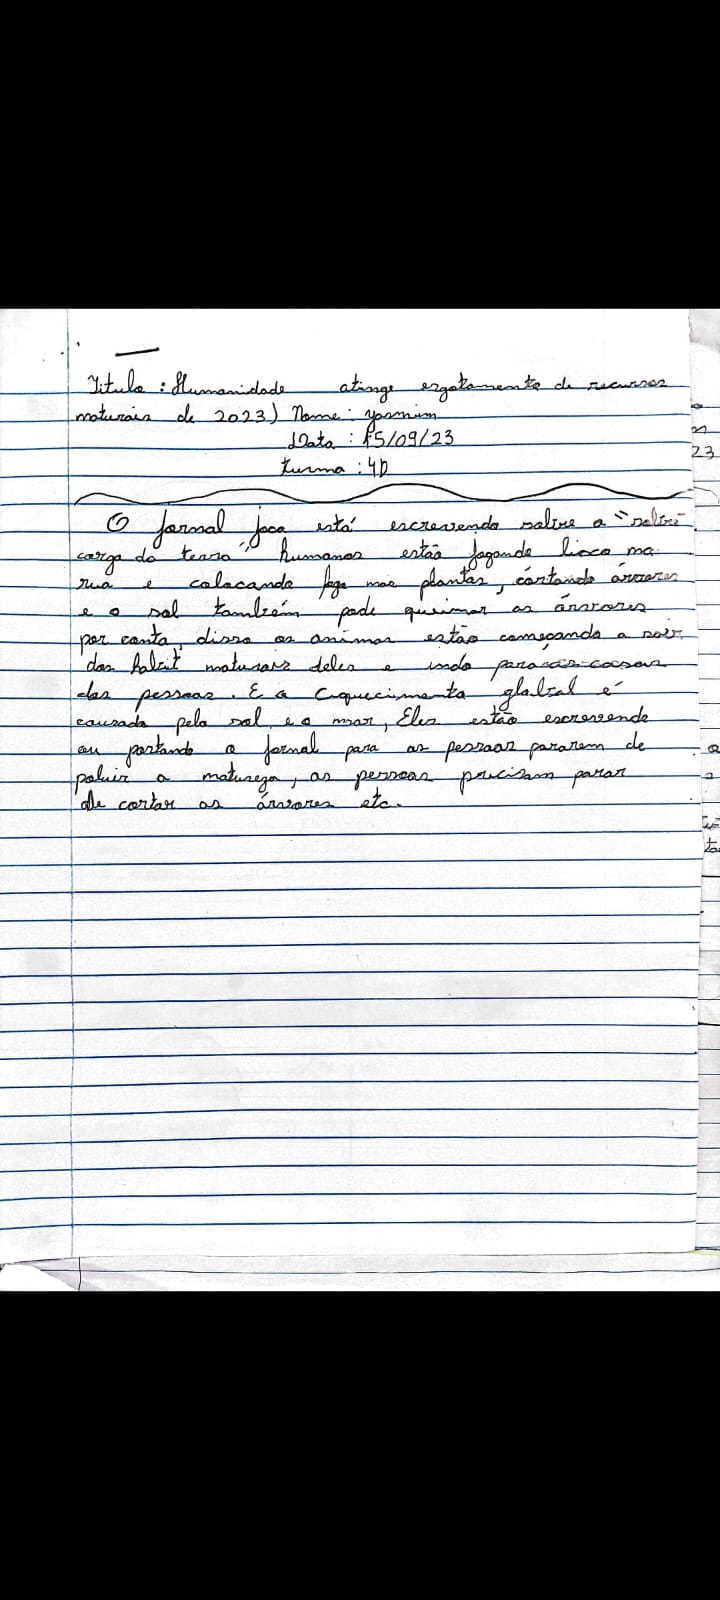 Titulo : Humanidade atinge esgotamento de recursos
naturais de 2023) Nome : yasmim
Data : 15/09/23
turma : 4D
O jornal joca está escrevendo sobre a "sobre
carga da terra", humanos estão jogando lixo na
rua e colocando fogo nas plantas, cortando árvores
e o sol também pode queimar as árvores
por conta, disso os animas estão começando a sair
dos habit naturais deles e indo para as casas
das pessoas. E a Equecimento global é
causado pelo sol e o mar, Eles estão escrevendo
ou postando o jornal para as pessoas pararem de
poluir a natureza, as pessoas precisam parar
de cortar as árvores etc.
23